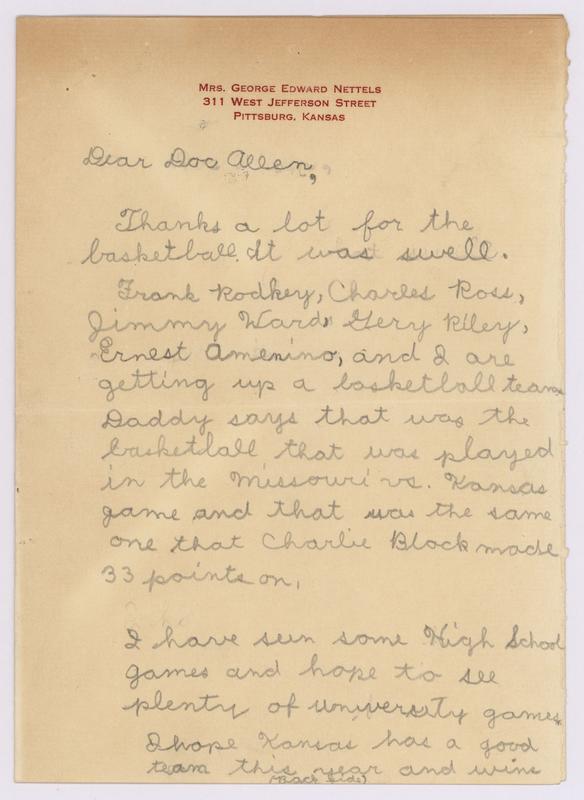 MRS. GEORGE EDWARD NETTELS
311 WEST JEFFERSON STREET
PITTSBURG, KANSAS
Dear Doc Allen,
Thanks a lot for the
basketball. It was swell.
Frank Rodkey, Charles Ross,
Jimmy Ward, Gery Riley,
Ernest Amenino, and I are
getting up a basketball team.
Daddy says that was the
basketball that was played
in the Missouri vs. Kansas
game and that was the same
one that Charlie Block made
33 points on.
I have seen some High School
games and hope to see
plenty of university games.
I hope Kansas has a good
team this year and wins
(Back Side)